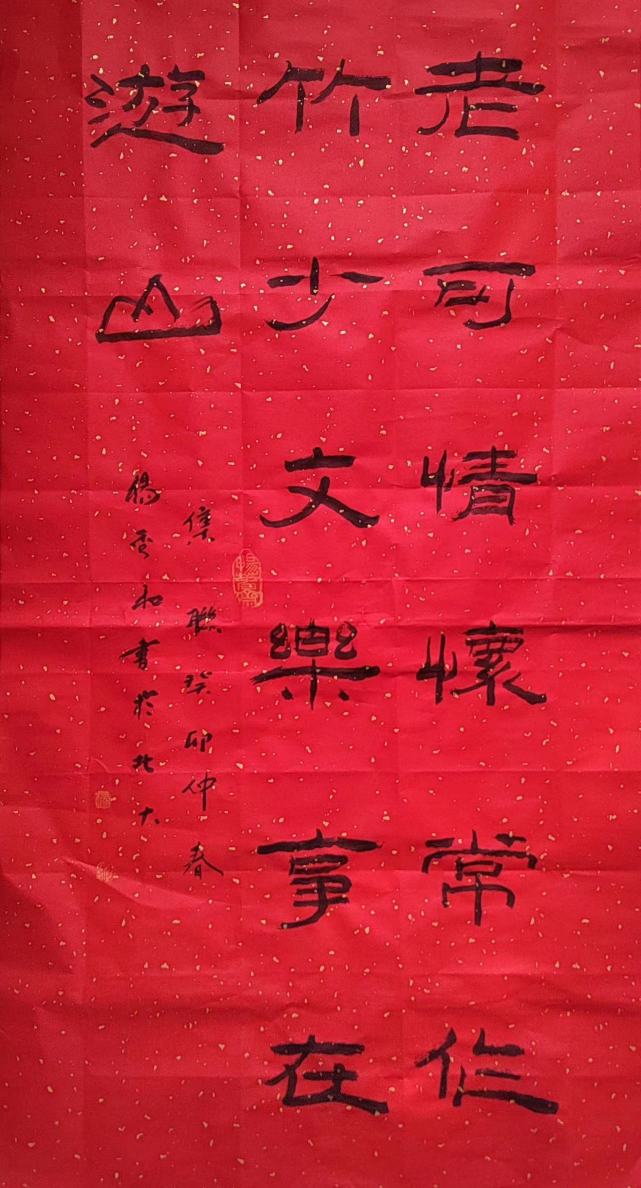 老可情懷常作
竹少文樂事在
遊山
集聯癸卯仲春
楊
和書於北大